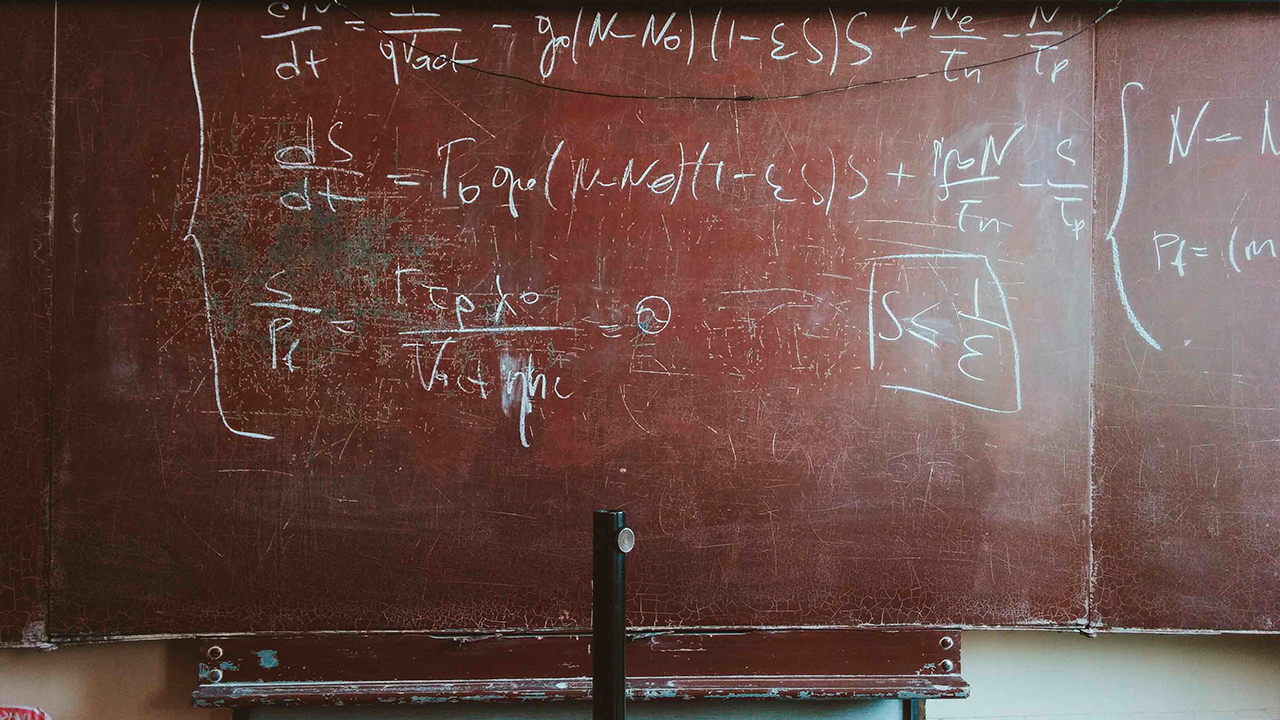 dN/dt = I/qVact - g₀(N-N₀)(1-εS)S + Ne/τn - N/τp
dS/dt = Γ₀g₀(N-N₀)(1-εS)S + N/τn - S/τp
S/Pf = Γτpλ₀/Vactηhc = ②
S ≤ 1/ε
N = N
Pf = (m